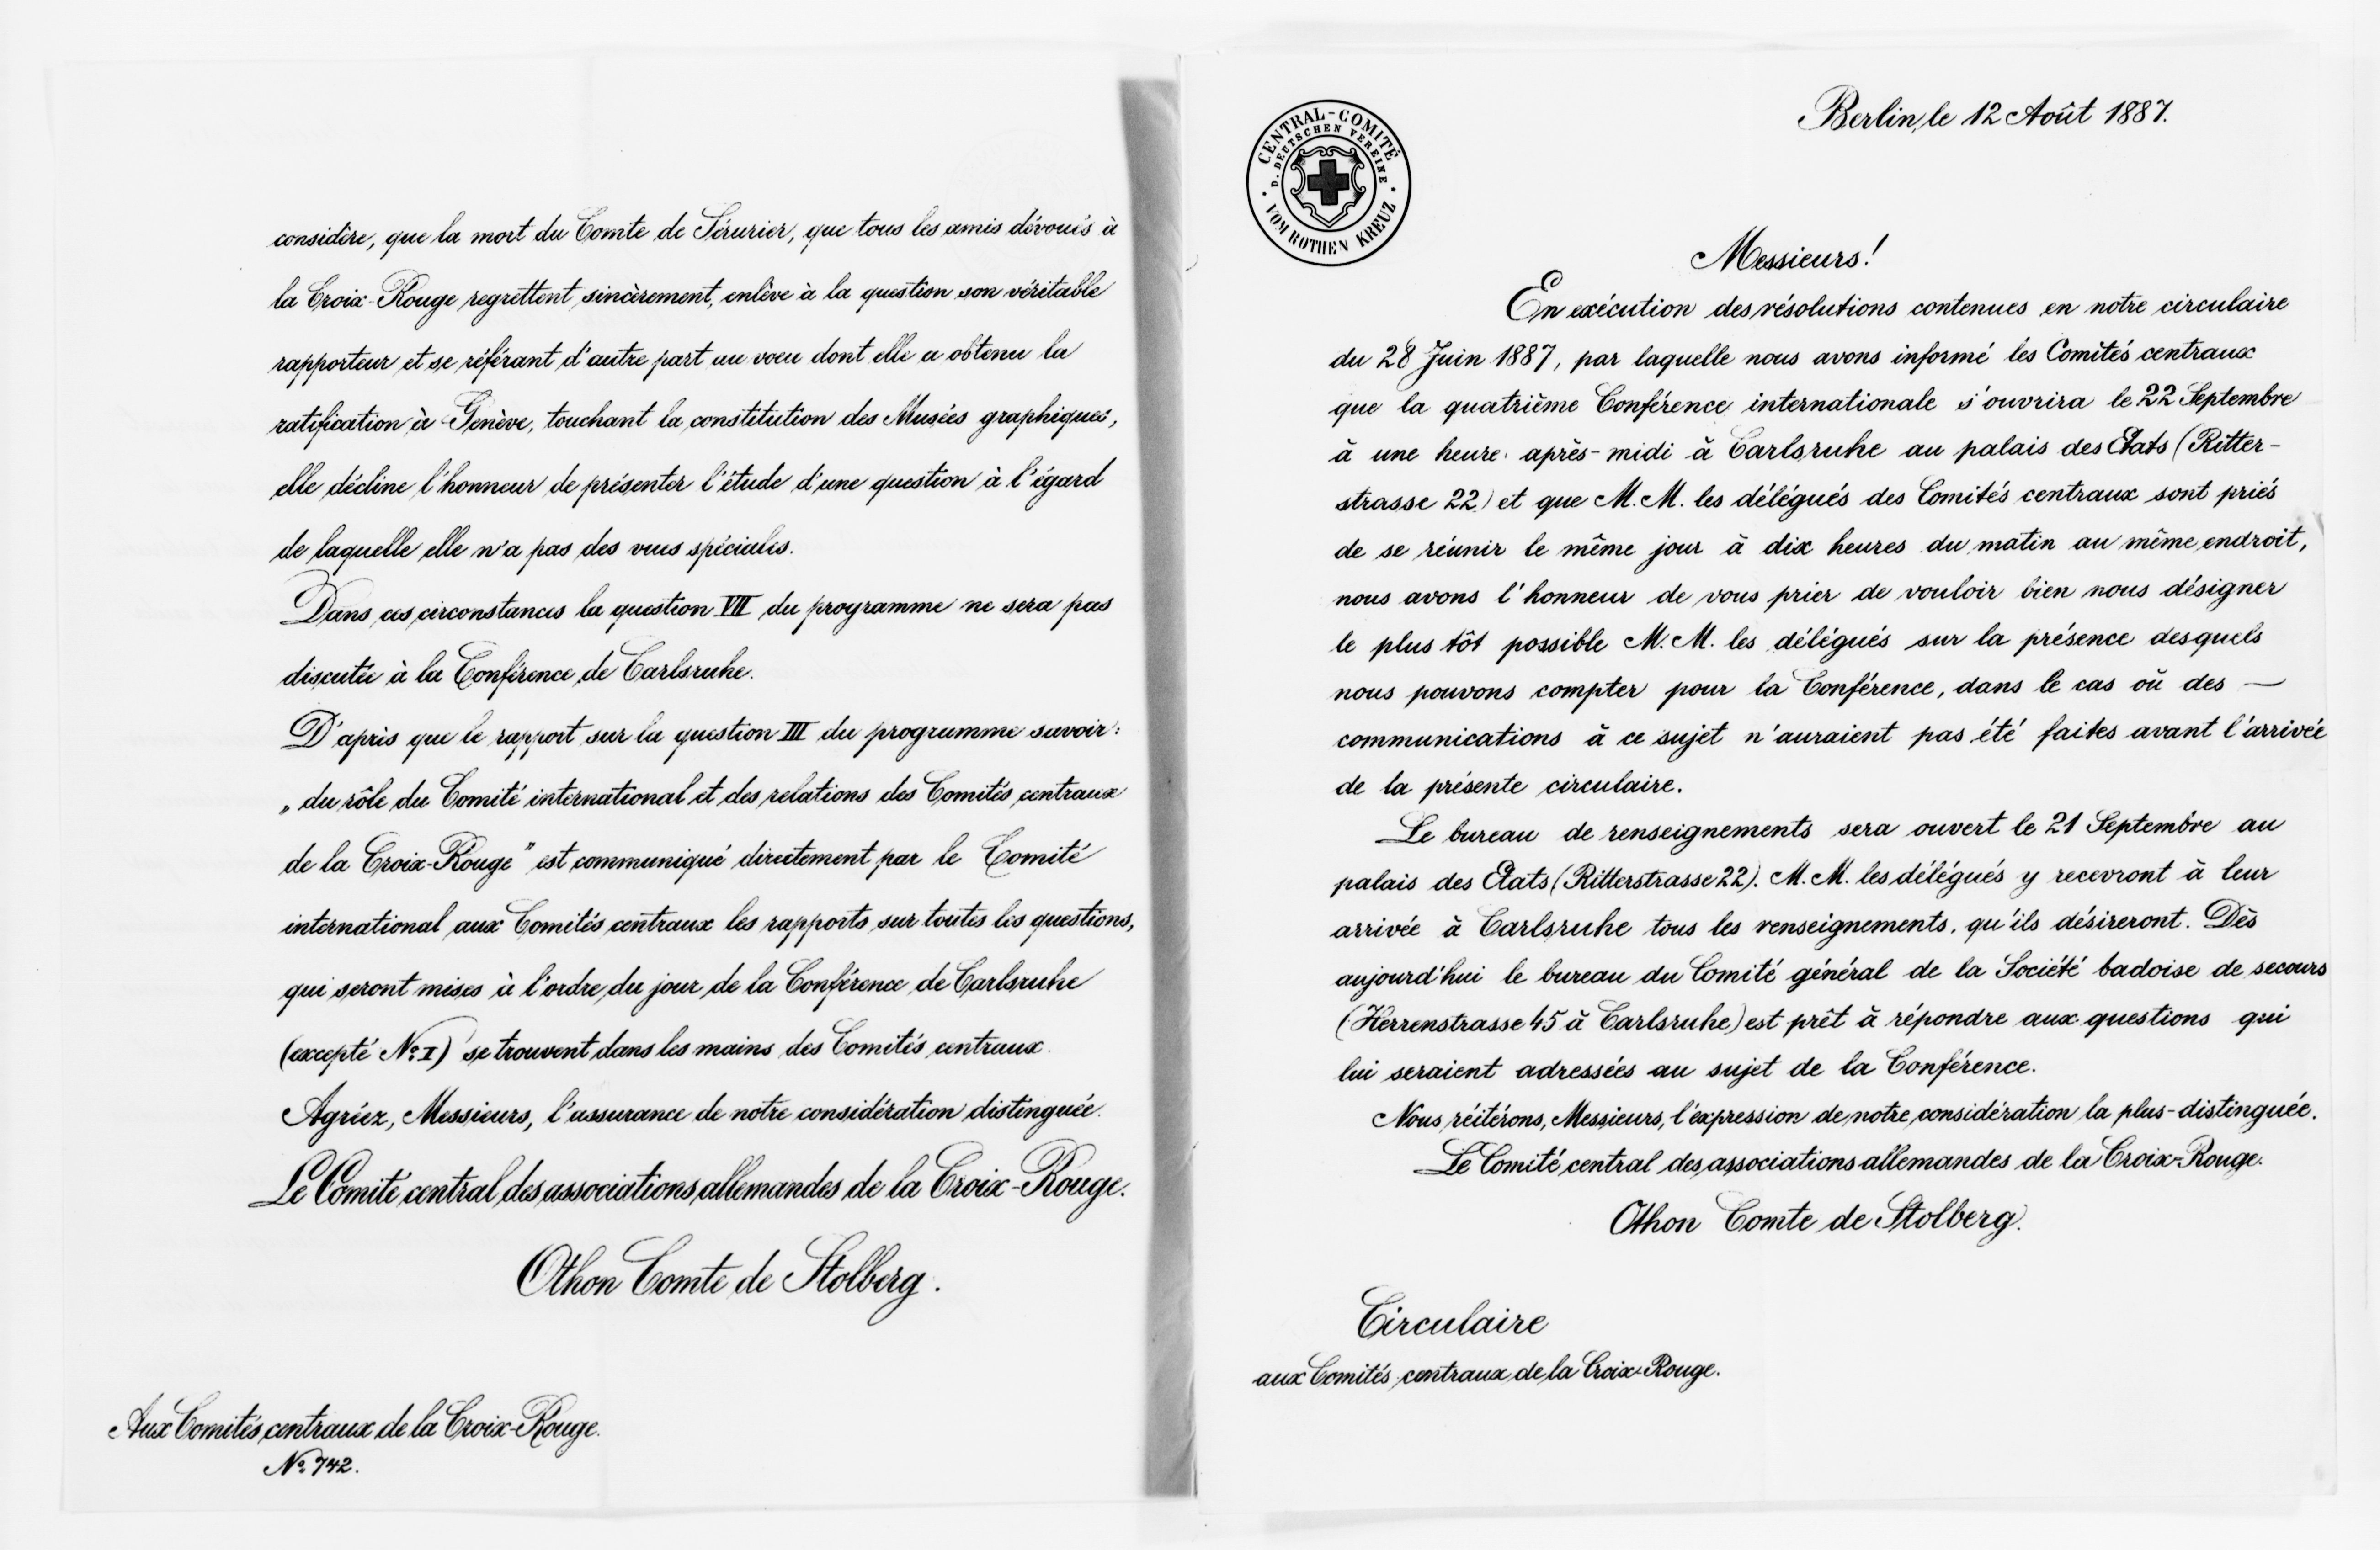 considère, que la mort du Comte de Sérurier, que tous les amis dévoués à
la Croix-Rouge regrettent sincèrement, enlève à la question son véritable
rapporteur et se référant d'autre part au voeu dont elle a obtenu la
ratification à Genève, touchant la constitution des Musées graphiques,
elle décline l'honneur de présenter l'étude d'une question à l'égard
de laquelle elle n'a pas des vues spéciales.
Dans ces circonstances la question VII du programme ne sera pas
discutée à la Conférence de Carlsruhe.
D'après que le rapport sur la question III du programme savoir:
„du rôle du Comité international et des relations des Comités centraux
de la Croix-Rouge" est communiqué directement par le Comité
international aux Comités centraux les rapports sur toutes les questions,
qui seront mises à l'ordre du jour de la Conférence de Carlsruhe
(excepté No. I) se trouvent dans les mains des Comités centraux.
Agréez, Messieurs, l'assurance de notre considération distinguée.
Le Comité central des associations allemandes de la Croix-Rouge.
Othon Comte de Stolberg.
Aux Comités centraux de la Croix-Rouge.
No. 742.
CENTRAL-COMITÉ
D. DEUTSCHEN VEREINE
VOM ROTHEN KREUZ
Berlin, le 12 Août 1887.
Messieurs!
En exécution des résolutions contenues en notre circulaire
du 28 Juin 1887, par laquelle nous avons informé les Comités centraux
que la quatrième Conférence internationale s'ouvrira le 22 Septembre
à une heure après-midi à Carlsruhe au palais des Etats (Ritter-
strasse 22) et que M.M. les délégués des Comités centraux sont priés
de se réunir le même jour à dix heures du matin au même endroit,
nous avons l'honneur de vous prier de vouloir bien nous désigner
le plus tôt possible M.M. les délégués sur la présence desquels
nous pouvons compter pour la Conférence, dans le cas où des —
communications à ce sujet n'auraient pas été faites avant l'arrivée
de la présente circulaire.
Le bureau de renseignements sera ouvert le 21 Septembre au
palais des Etats (Ritterstrasse 22). M.M. les délégués y recevront à leur
arrivée à Carlsruhe tous les renseignements, qu'ils désireront. Dès
aujourd'hui le bureau du Comité général de la Société badoise de secours
(Herrenstrasse 45 à Carlsruhe) est prêt à répondre aux questions qui
lui seraient adressées au sujet de la Conférence.
Nous réitérons, Messieurs, l'expression de notre considération la plus-distinguée.
Le Comité central des associations allemandes de la Croix-Rouge.
Othon Comte de Stolberg.
Circulaire
aux Comités centraux de la Croix-Rouge.